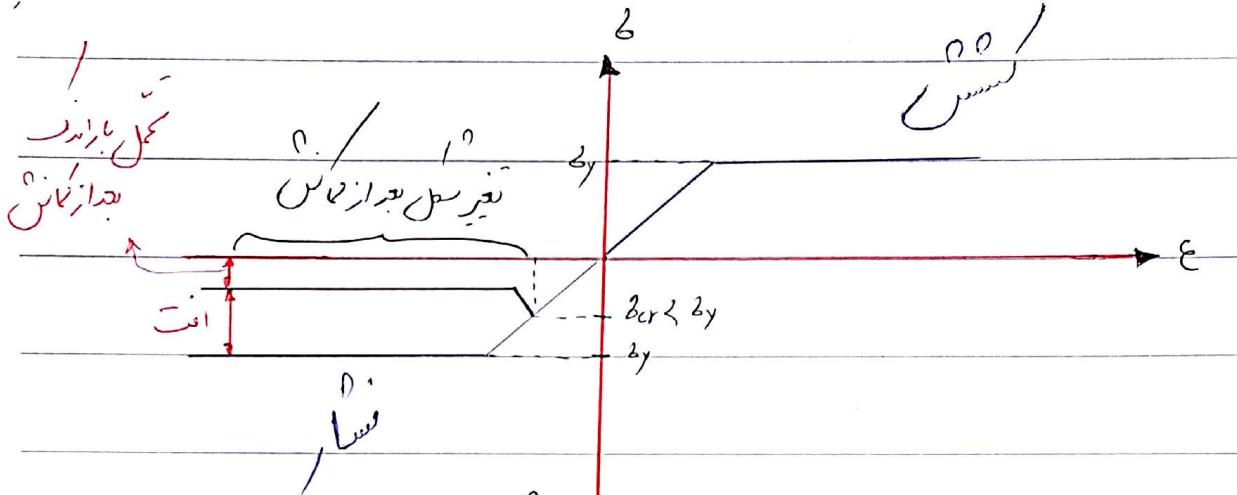 σ
کشش
تحمل بار اندک
بعد از کمانش
تغیر شکل بعد از کمانش
σy
ε
σcr < σy
افت
σy
فشار